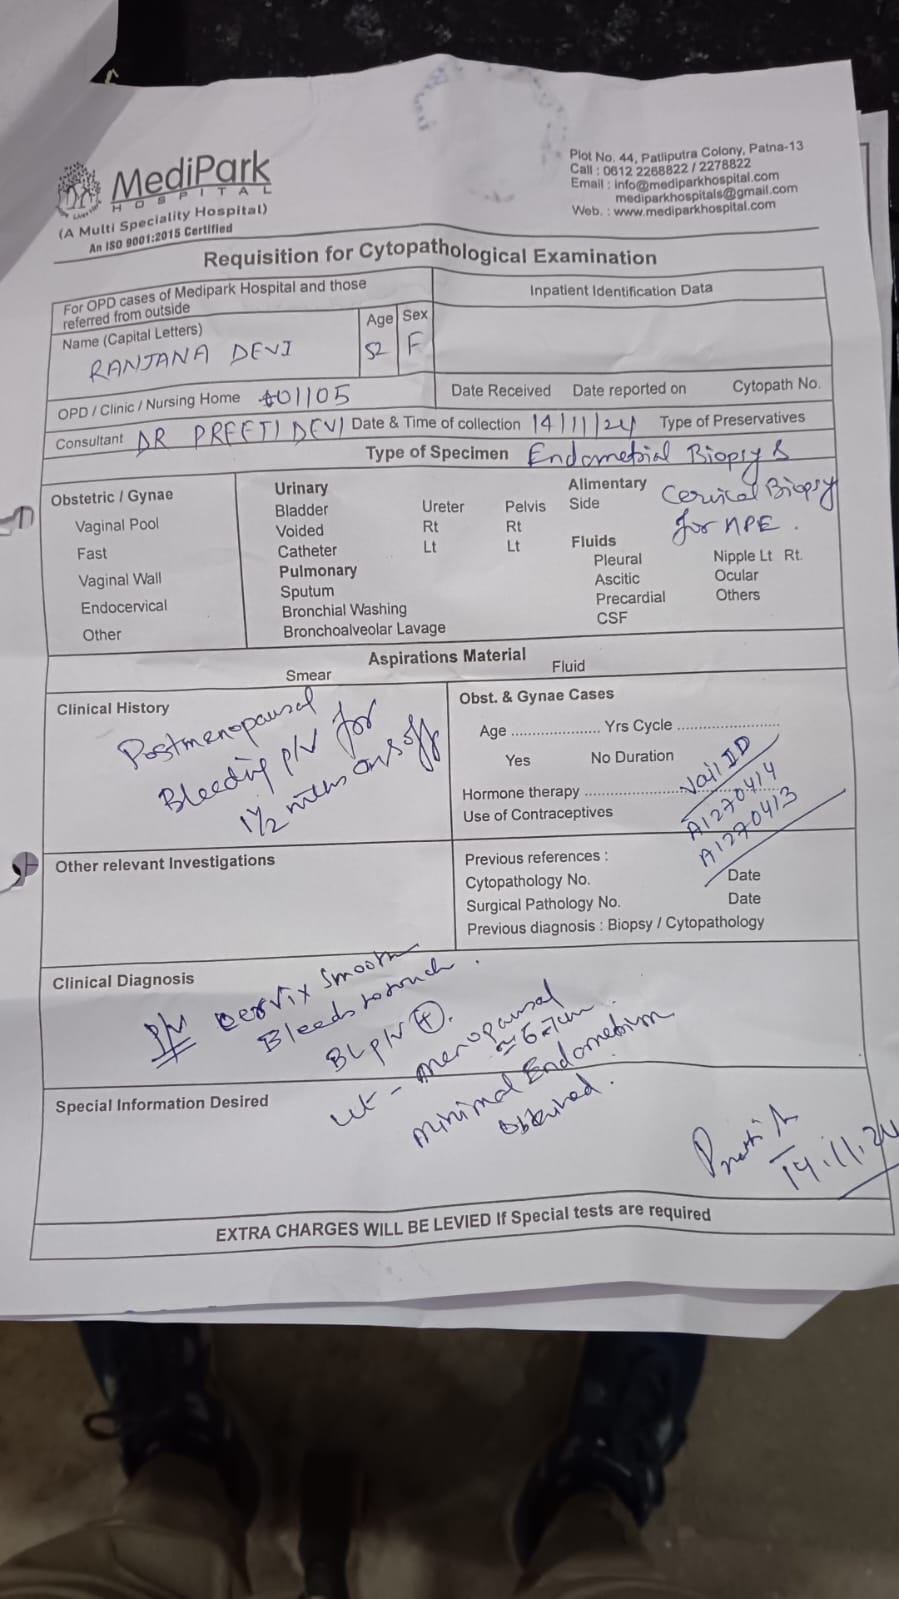 MediPark
HOSPITAL
(A Multi Speciality Hospital)
An ISO 9001:2015 Certified
Plot No. 44, Patliputra Colony, Patna-13
Call : 0612 2268822 / 2278822
Email : info@mediparkhospital.com
mediparkhospitals@gmail.com
Web. : www.mediparkhospital.com
Requisition for Cytopathological Examination
For OPD cases of Medipark Hospital and those
referred from outside
Inpatient Identification Data
Name (Capital Letters) Age Sex
RANJANA DEVI 52 F
OPD / Clinic / Nursing Home 401105
Date Received Date reported on Cytopath No.
Consultant DR PREETI DEVI Date & Time of collection 14/11/24 Type of Preservatives
Type of Specimen Endometrial Biopsy &
Cervical Biopsy
for HPE.
Obstetric / Gynae
Vaginal Pool
Fast
Vaginal Wall
Endocervical
Other
Urinary
Bladder Ureter Pelvis
Voided Rt Rt
Catheter Lt Lt
Pulmonary
Sputum
Bronchial Washing
Bronchoalveolar Lavage
Alimentary
Side
Fluids
Pleural Nipple Lt Rt.
Ascitic Ocular
Precardial Others
CSF
Aspirations Material
Smear Fluid
Clinical History
Postmenopausal
Bleeding p/v for
1½ mths on & off
Obst. & Gynae Cases
Age .................... Yrs Cycle .......................
Yes No Duration
Hormone therapy ................................
Use of Contraceptives
Vail ID
A1270414
A1270413
Other relevant Investigations
Previous references :
Cytopathology No. Date
Surgical Pathology No. Date
Previous diagnosis : Biopsy / Cytopathology
Clinical Diagnosis
P/V cervix smooth
Bleeds to touch.
BL p/v (+).
ut - menopausal
≈ 6-7cm.
minimal Endometrium
obtained.
Special Information Desired
14.11.24
EXTRA CHARGES WILL BE LEVIED If Special tests are required